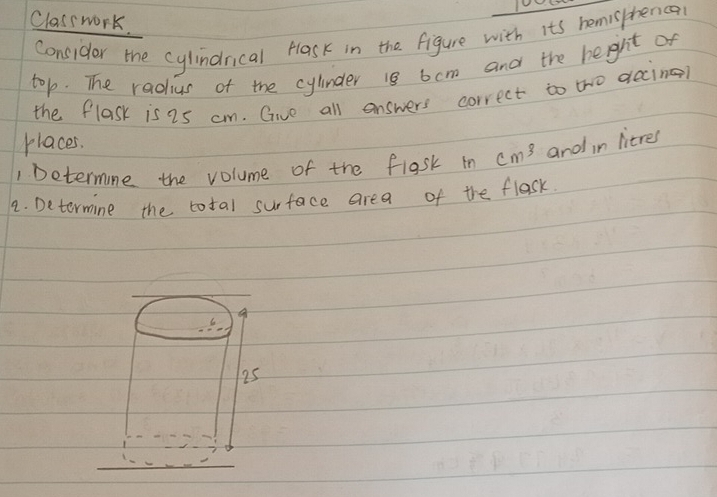 Classwork.
Consider the cylindrical flask in the figure with its hemispherical
top. The radius of the cylinder is 6cm and the height of
the flask is 25 cm. Give all answers correct to two decimal
places.
1, Determine the volume of the flask in cm³ and in litres
2. Determine the total surface area of the flask.
6
25